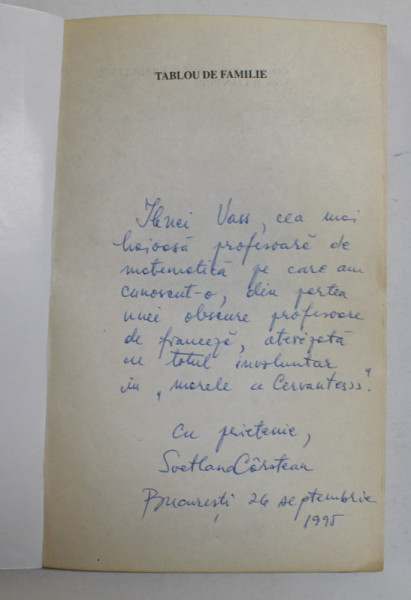 TABLOU DE FAMILIE
Ilenei Vass, cea mai
haioasă profesoară de
matematică pe care am
cunoscut-o, din partea
unei obscure profesoare
de franceză, aterizată
cu totul involuntar
în „marele Cervantesss”.
Cu prietenie,
Svetlana Cârstean
București 26 septembrie
1995